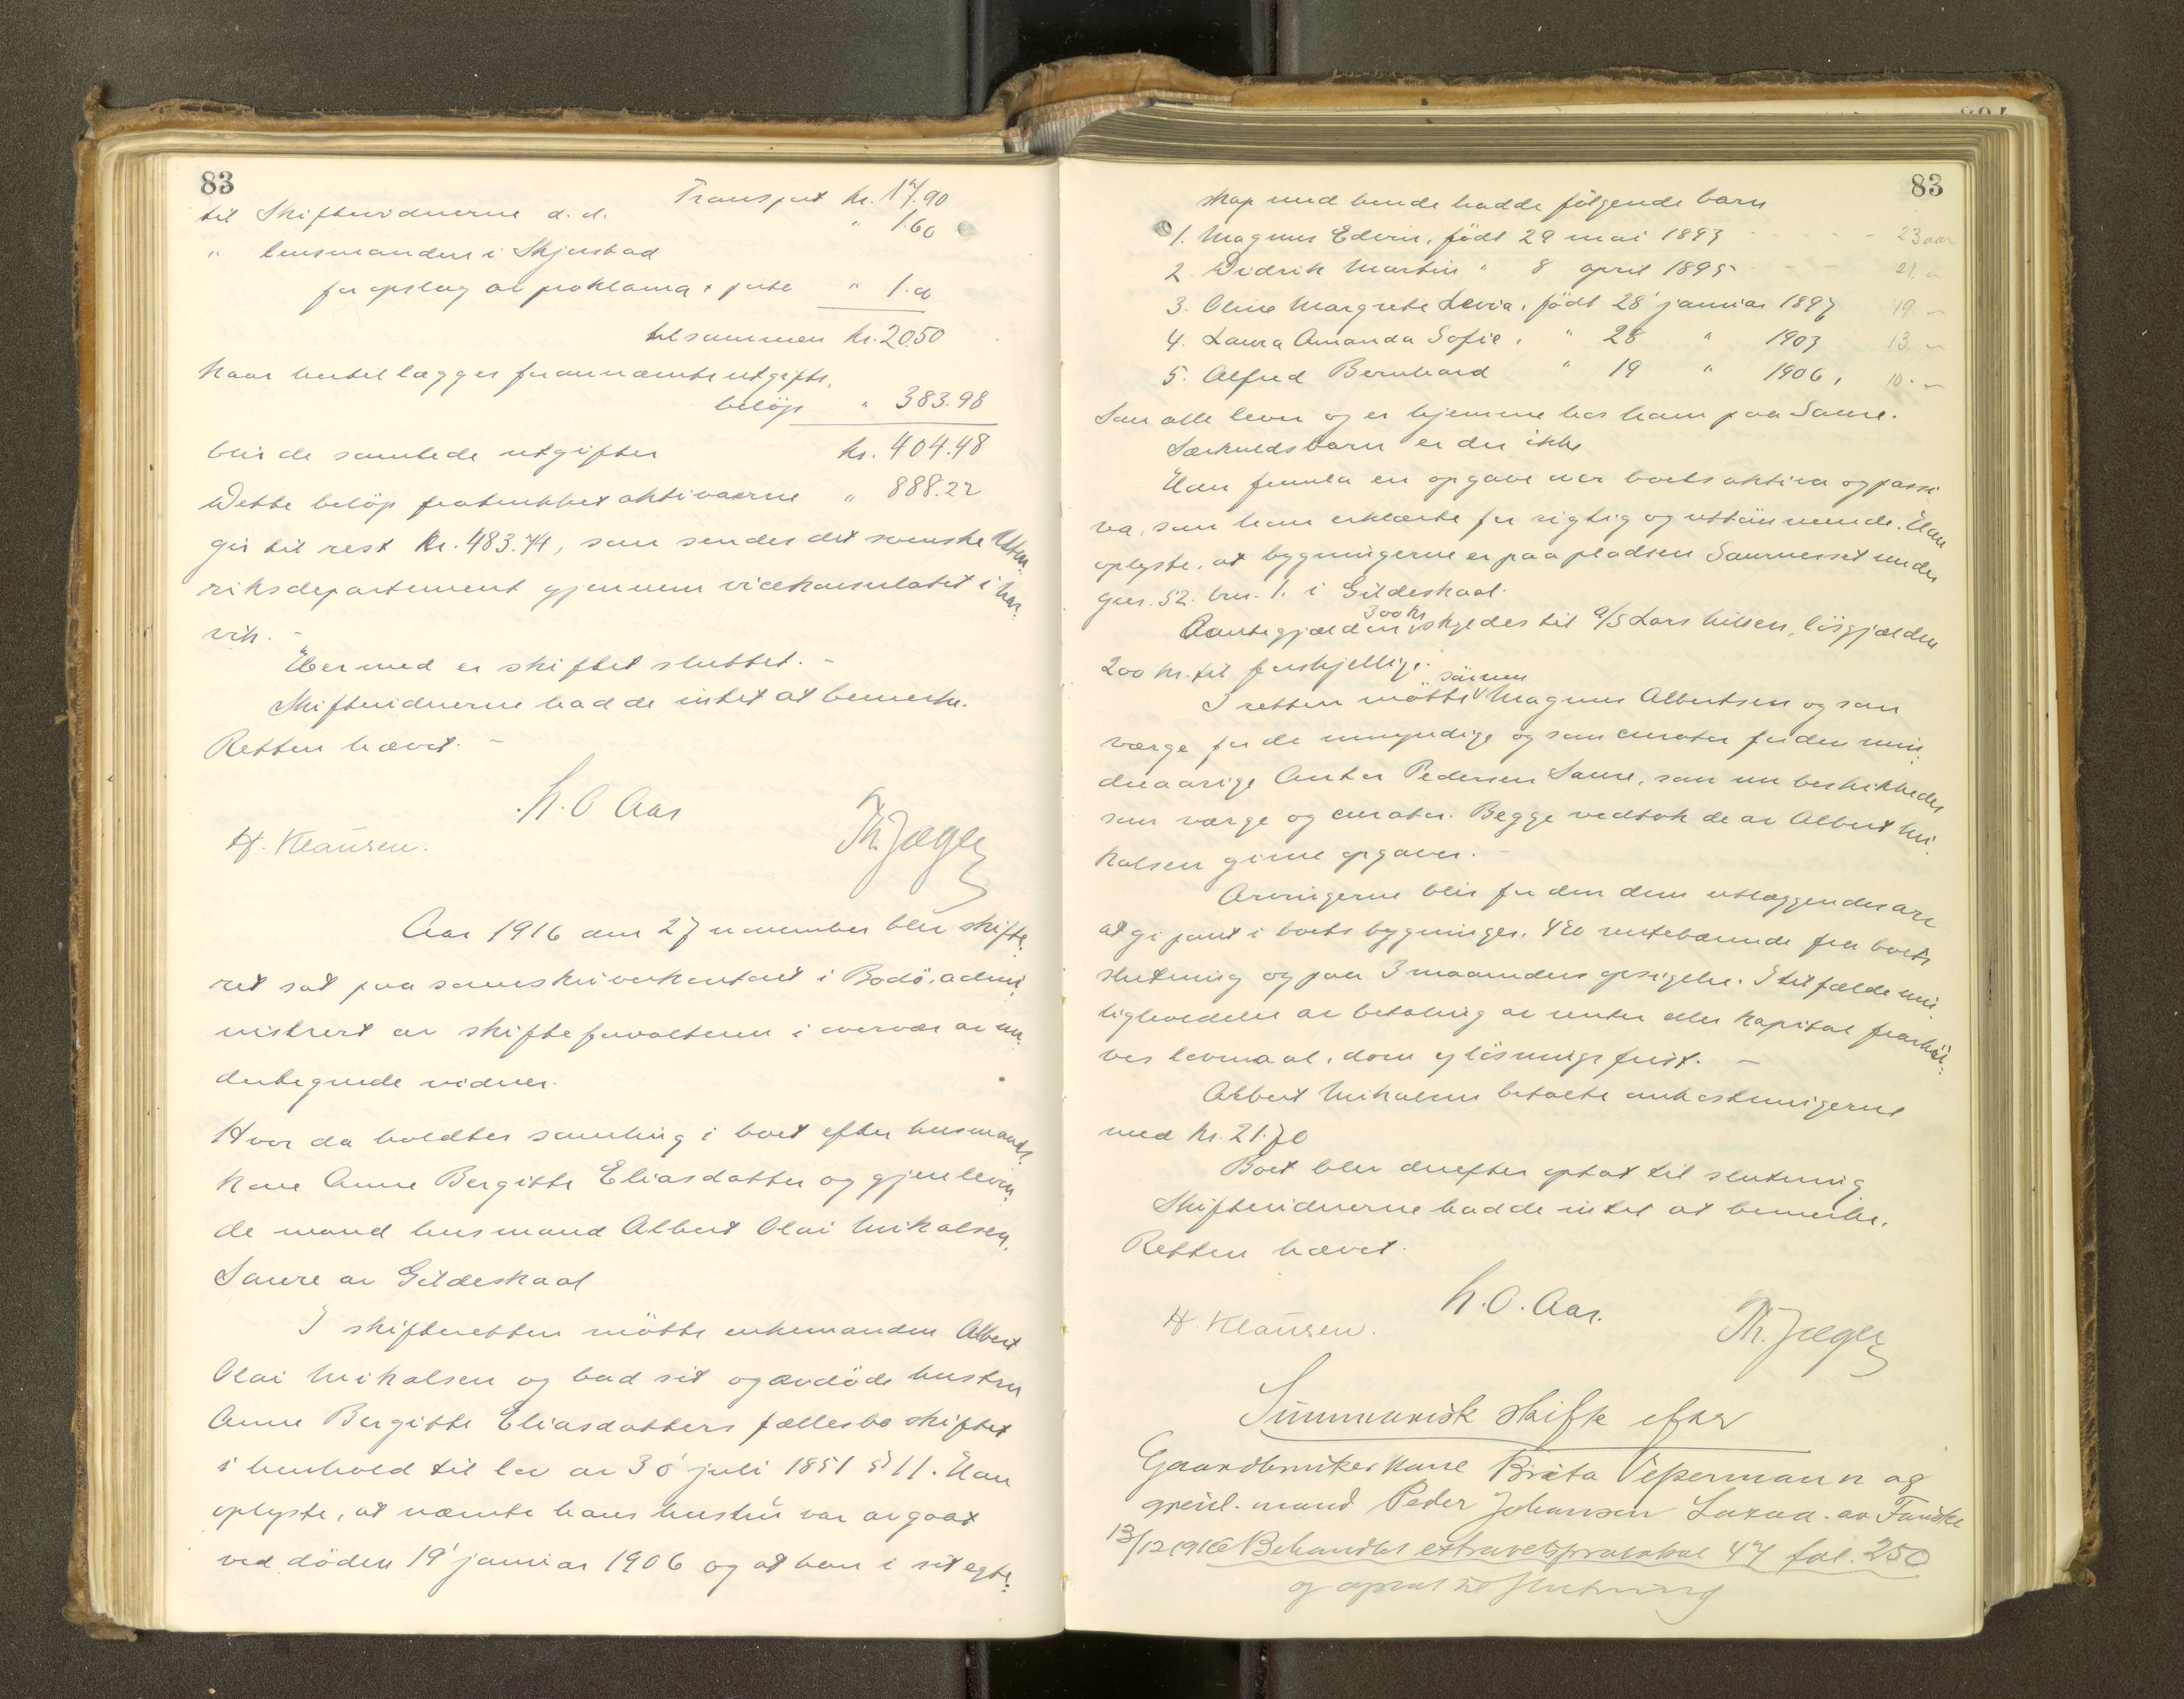 83
Transport kr. 17.90
til Skiftevidnerne d. d. " 1.60
" lensmanden i Skjerstad
for opslag av proklama + porto " 1.00
tilsammen kr. 20.50
Naar hertil lægges forannævnte utgifts-
beløp " 383.98
blir de samlede utgifter kr. 404.48
Dette beløp fratrukket aktivaerne " 888.22
gir til rest kr. 483.74, som sendes det svenske Uten-
riksdepartement gjennem vicekonsulatet i Nar-
vik. -
Hermed er skiftet sluttet. -
Skiftevidnerne hadde intet at bemerke.
Retten hævet. -
N. O Aas
H. Klausen. Th. Jæger
Aar 1916 den 27 november blev skifte-
ret sat paa sorenskriverkontoret i Bodö, admi-
nistrert av skifteforvalteren i overvær av un-
dertegnede vidner.
Hvor da holdtes samling i boet efter husmands-
kone Anne Bergitte Eliasdatter og gjenleven-
de mand husmand Albert Olai Mikalsen,
Saure av Gildeskaal
I skifteretten mötte enkemanden Albert
Olai Mikalsen og bad sit og avdöde hustru
Anne Bergitte Eliasdatters fællesbo skiftet
i henhold til lov av 30' juli 1851 § 11. Han
oplyste, at nævnte hans hustru var avgaat
ved döden 19' januar 1906 og at han i sit egte-
83
skap med hende hadde fölgende barn
1. Magnus Edvin, födt 29 mai 1893 - - - - 23 aar
2. Didrik Martin " 8 april 1895 - - - 21 "
3. Oline Margrete Levia, födt 28' januar 1897 19. "
4. Laura Amanda Sofie, " 28 " 1903 13. "
5. Alfred Bernhard " 19 " 1906, 10. "
Som alle lever og er hjemme hos ham paa Saure.
Særkuldsbarn er der ikke
Han fremla en opgave over boets aktiva og passi-
va, som han erklærte for rigtig og uttömmende. Han
oplyste, at bygningerne er paa pladsen Saurnesset under
gnr. 52. brn. 1. i Gildeskaal.
Pantegjælden 300 kr skyldes til A/S Lars Nilsen, lösgjælden
200 kr. til forskjellige.
I retten mötte sönnen Magnus Albertsen og som
værge for de umyndige og som curator for den min-
dreaarige Anton Pedersen Saure, som nu beskikkedes
som værge og curator. Begge vedtok de av Albert Mi-
kalsen givne opgaver. -
Arvingerne blir for den dem utlæggendes arv
at gi pant i boets bygninger. 4% rentebærende fra boets
slutning og paa 3 maaneders opsigelse. I tilfælde mis-
ligholdelse av betaling av renter eller kapital frafal-
des lovmaal, dom og lösningsfrist. -
Albert Mikalsen betalte omkostningerne
med kr. 21.70
Boet blev derefter optat til slutning
Skiftevidnerne hadde intet at bemerke.
Retten hævet.
N. O. Aas.
H. Klausen. Th. Jæger
Summarisk skifte efter
Gaardbrukerkone Brita Vepermann og
gjenl. mand Peder Johansen Laxaa. av Fauske
13/12 1916 Behandlet extraretsprotokol 47 fol. 250
og optat til slutning